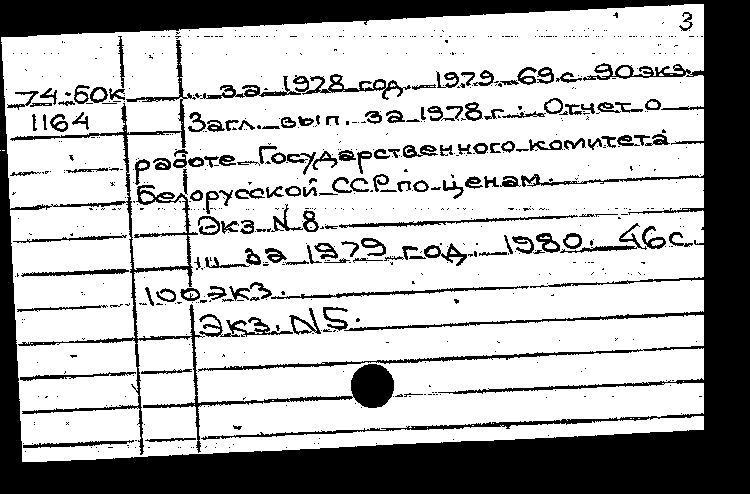 3
74-БОК ... за 1978 год. 1979. 69с. 90экз.
1164 Загл. вып. за 1978 г.: Отчет о
работе Государственного комитета
Белорусской ССР по ценам.
Экз. N 8
... за 1979 год. 1980. 46с.
100экз.
Экз. N5.